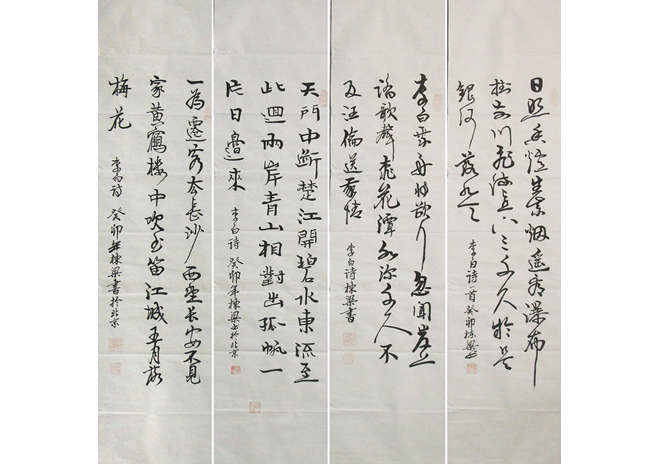 日照香炉生紫烟遥看瀑布
挂前川飛流直下三千尺疑是
銀河落九天
李白诗一首癸卯栋梁书
李白乘舟将欲行忽闻岸上
踏歌聲桃花潭水深千尺不
及汪倫送我情
李白诗栋梁書
天門中斷楚江開碧水東流至
此迴兩岸青山相對出孤帆一
片日邊來
李白诗癸卯年栋梁书於北京
一為遷客去長沙西望長安不見
家黄鶴樓中吹玉笛江城五月落
梅花
李白诗癸卯年栋梁書於北京